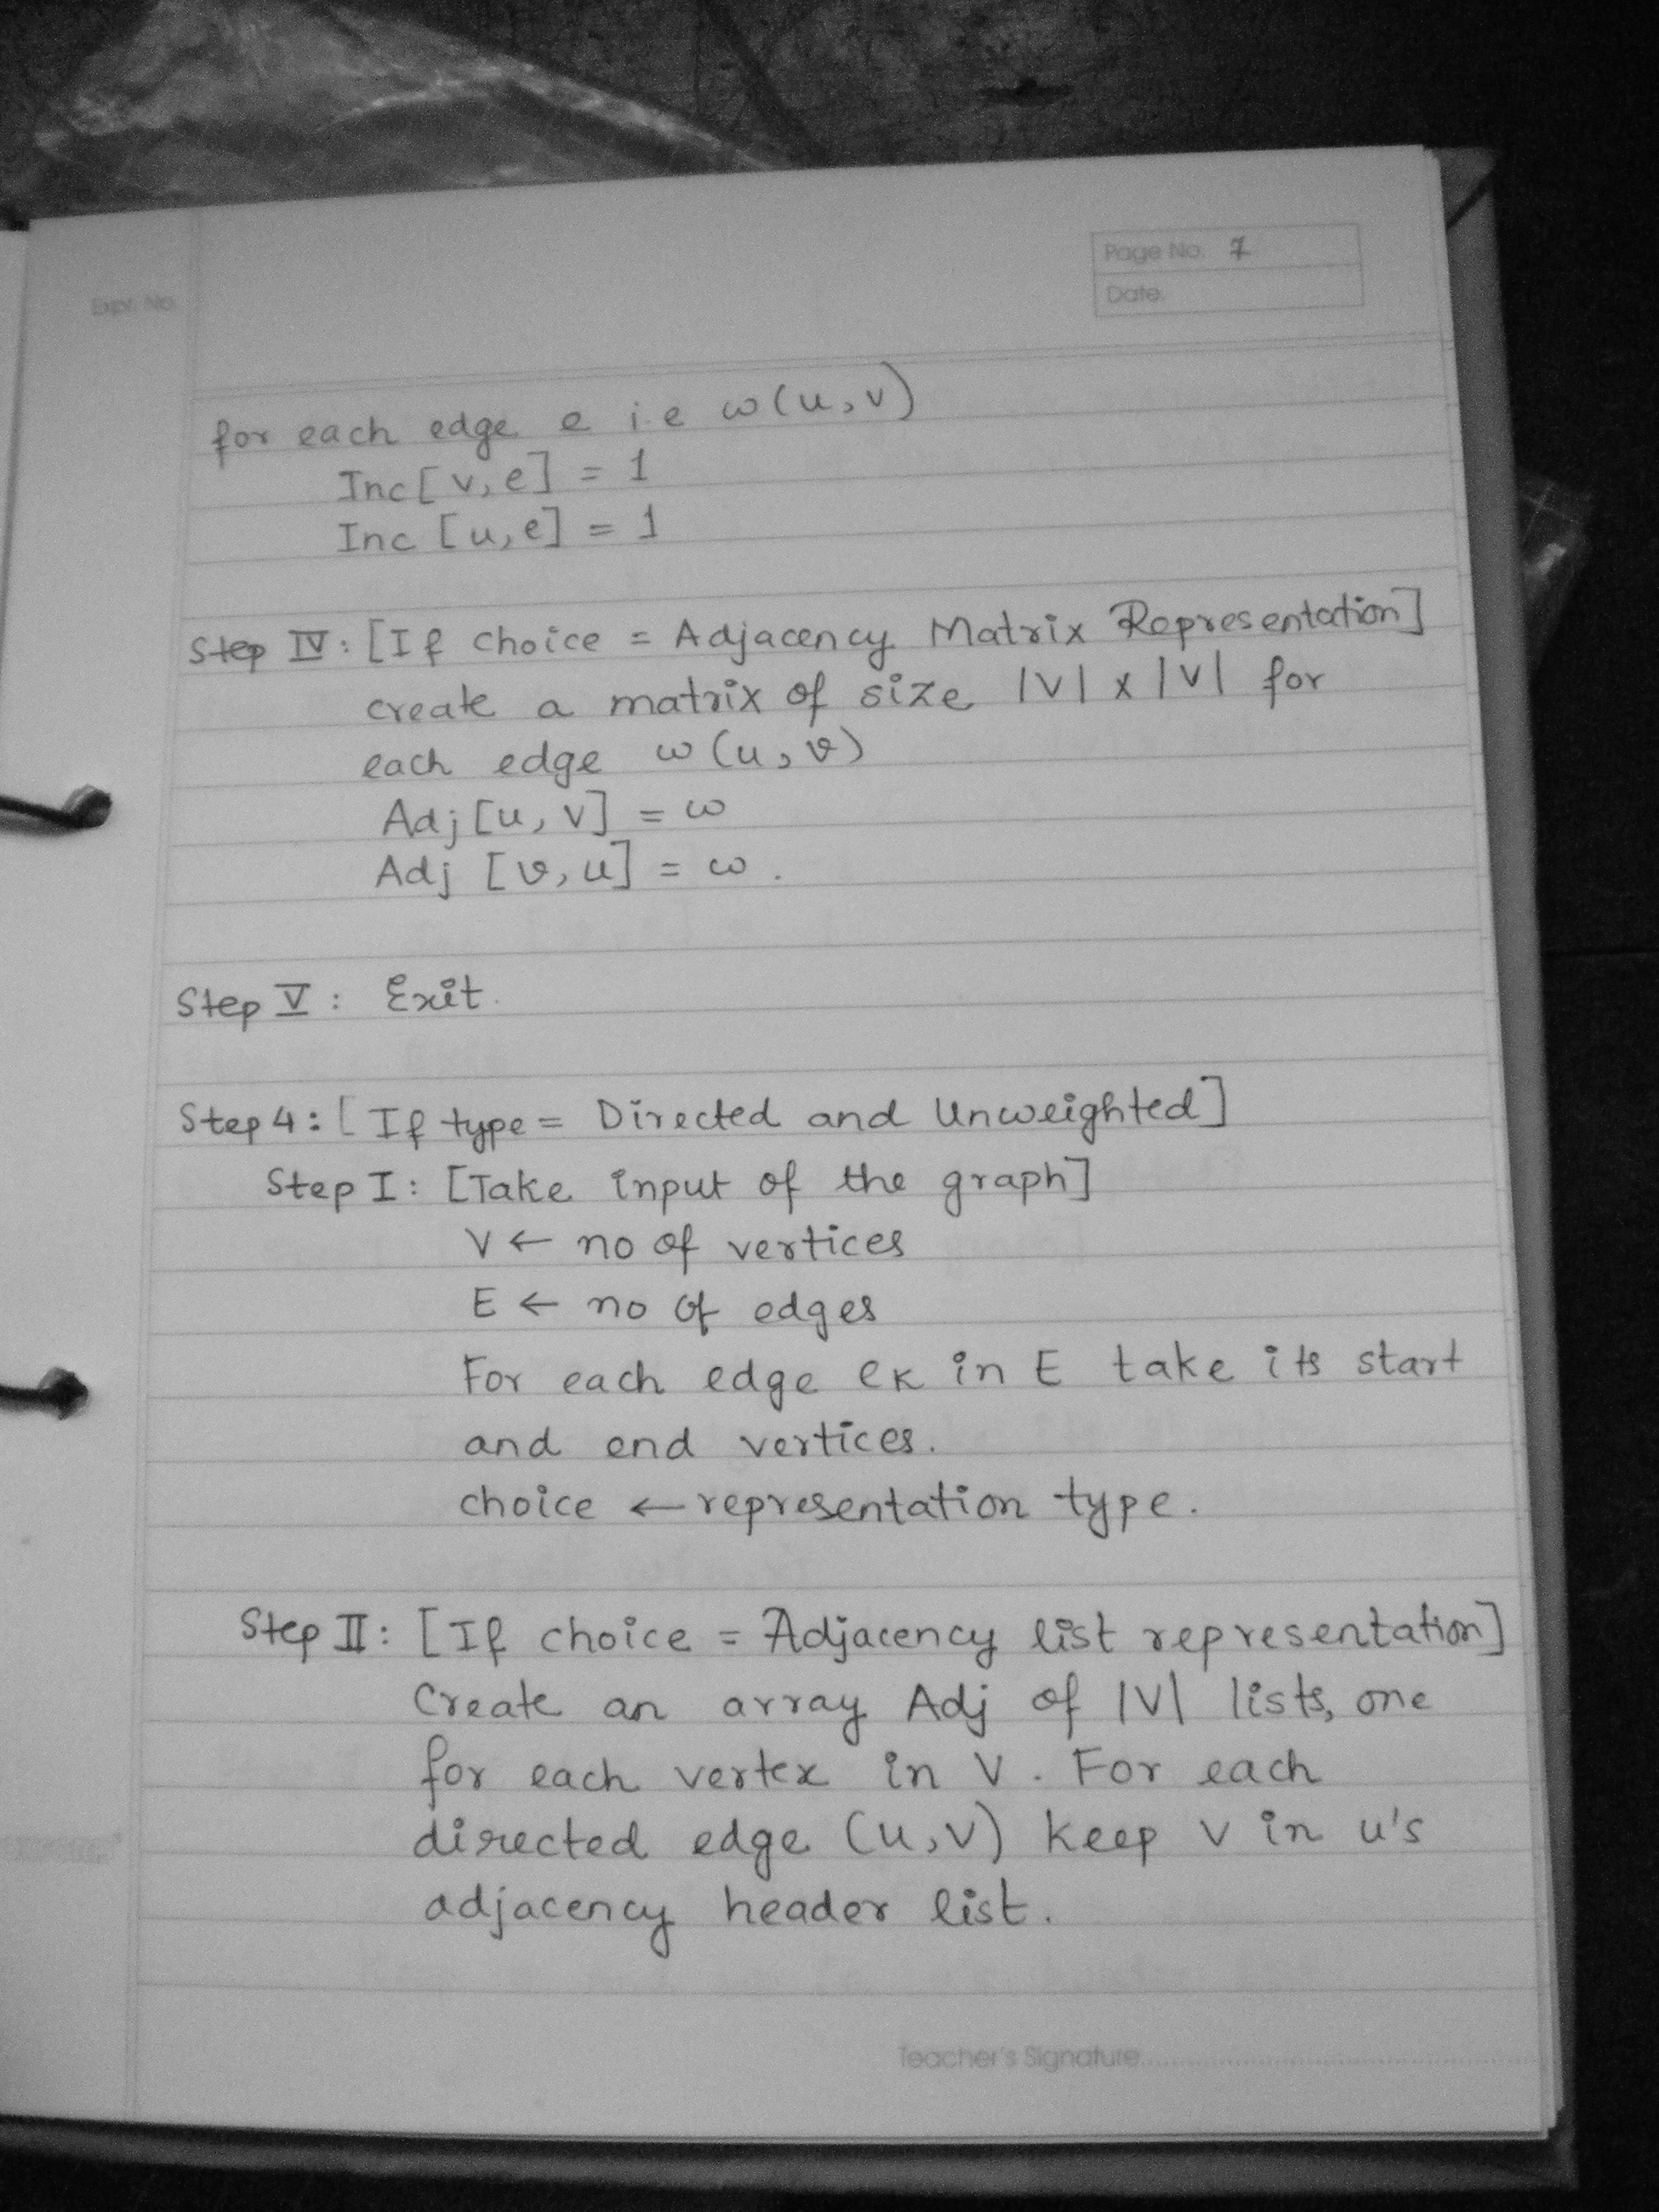 Page No. 7
Expt. No.
Date.
for each edge e i.e ω(u,v)
Inc[v,e] = 1
Inc [u,e] = 1
Step IV: [If choice = Adjacency Matrix Representation]
create a matrix of size |V| x |V| for
each edge ω(u,v)
Adj[u, v] = ω
Adj [v,u] = ω.
Step V: Exit.
Step 4: [If type = Directed and Unweighted]
Step I: [Take input of the graph]
V ← no of vertices
E ← no of edges
For each edge eK in E take its start
and end vertices.
choice ← representation type.
Step II: [If choice = Adjacency list representation]
Create an array Adj of |V| lists, one
for each vertex in V. For each
directed edge (u,v) keep v in u's
adjacency header list.
Teacher's Signature